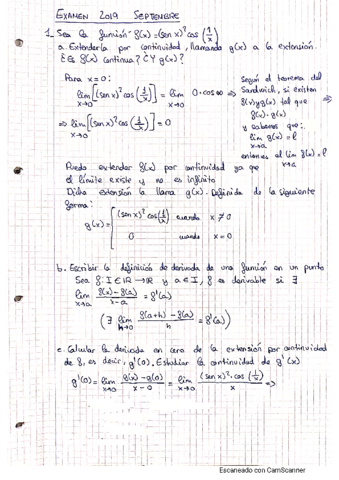 EXAMEN 2019 SEPTIEMBRE
1. Sea la función f(x)=(sen x)² cos (1/x)
a. Extenderla por continuidad, llamando g(x) a la extensión.
¿Es f(x) continua? ¿Y g(x)?
Para x=0:
lim x→0 [(sen x)² cos(1/x)] = lim x→0 0·cos ∞ ⇒
⇒ lim x→0 [(sen x)² cos(1/x)] = 0
Según el teorema del
Sandwich, si existen
f(x) y g(x) tal que
y sabemos que:
lim x→a g(x)=l
entonces el lim f(x)=l
x→a
Puedo extender f(x) por continuidad ya que
el límite existe y no es infinito
Dicha extensión la llama g(x). Definida de la siguiente
forma:
g(x) = { (sen x)² cos(1/x) cuando x ≠ 0
0 cuando x = 0
b. Escribir la definición de derivada de una función en un punto
Sea f: I ∈ ℝ → ℝ y a ∈ I, f es derivable si ∃
lim x→a f(x)-f(a) / x-a = f'(a)
(∃ lim h→0 f(a+h)-f(a) / h = f'(a))
c. Calcular la derivada en cero de la extensión por continuidad
de f, es decir, g'(0). Estudiar la continuidad de g'(x)
g'(0) = lim x→0 g(x)-g(0) / x-0 = lim x→0 (sen x)²·cos(1/x) / x ⇒
Escaneado con CamScanner